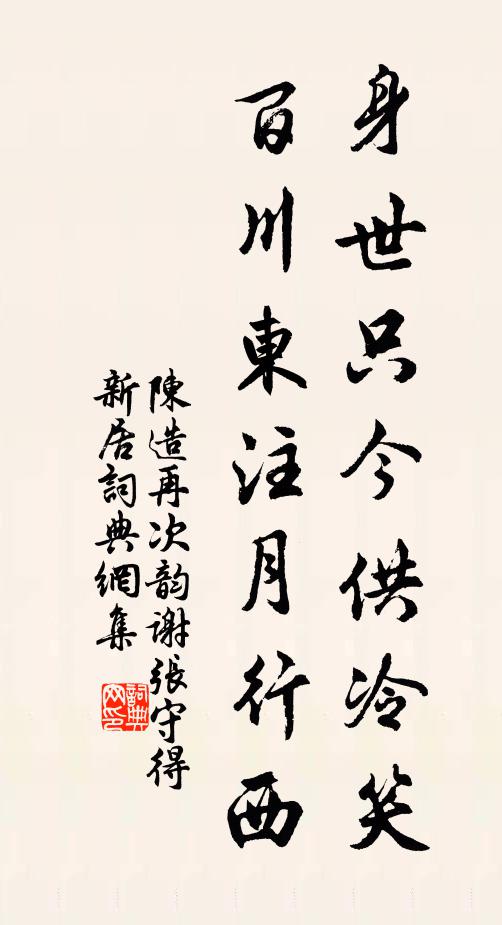 身世只今供冷笑
百川東注月行西
陳造再次韵謝張守得
新居詞典網集
詞典网印